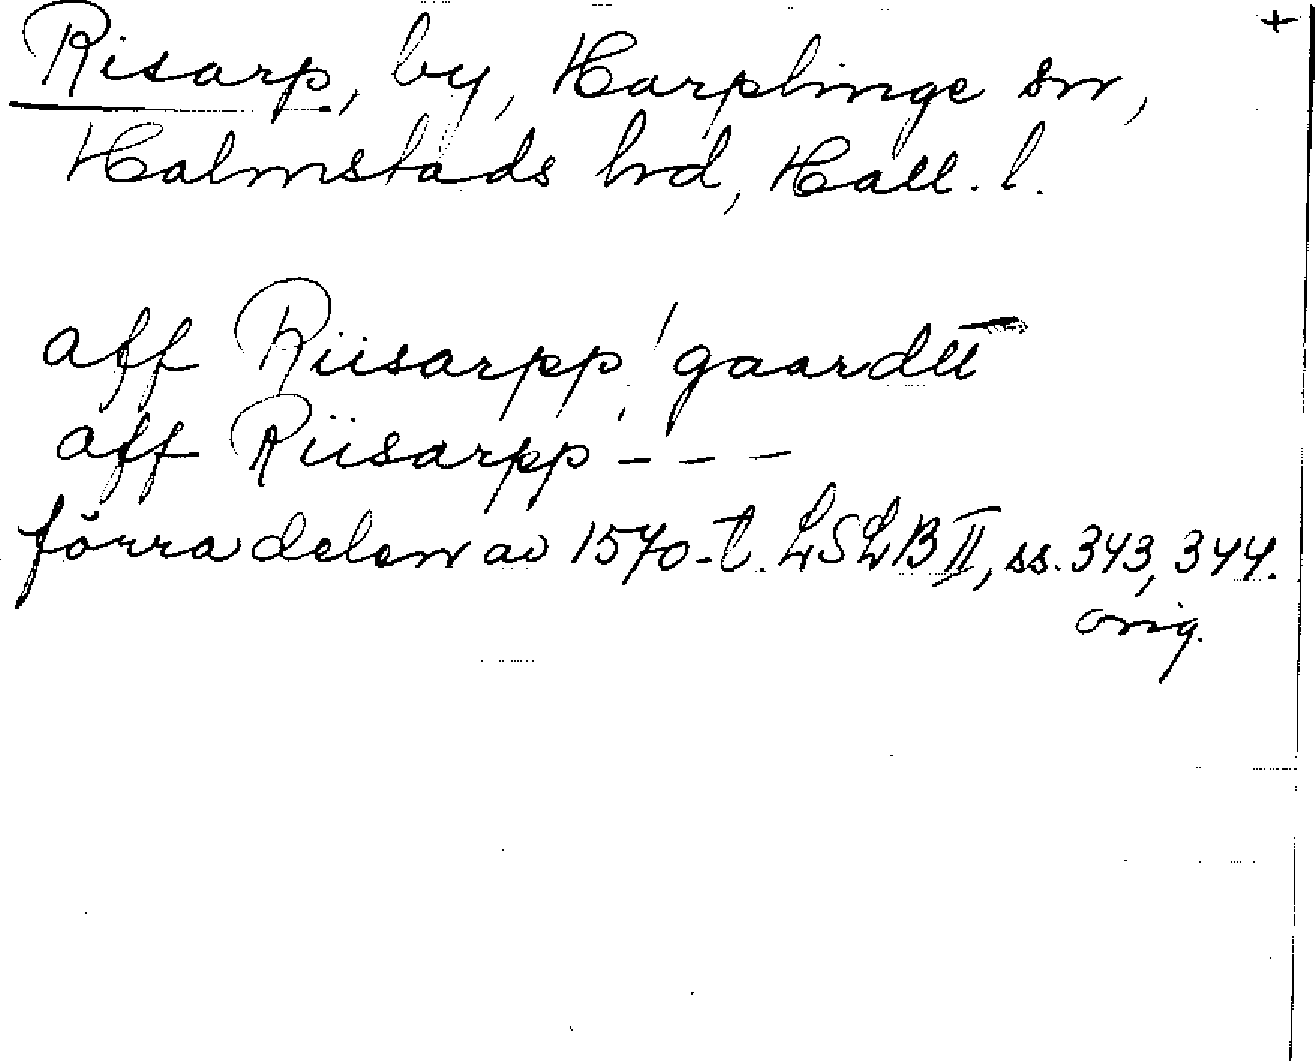 +
Risarp, by, Harplinge sn,
Halmstads hrd, Hall. l.
aff Riisarpp! gaardtt
aff Riisarpp - - -
förra delen av 1570-t. LSLB II, ss. 343, 344.
orig.